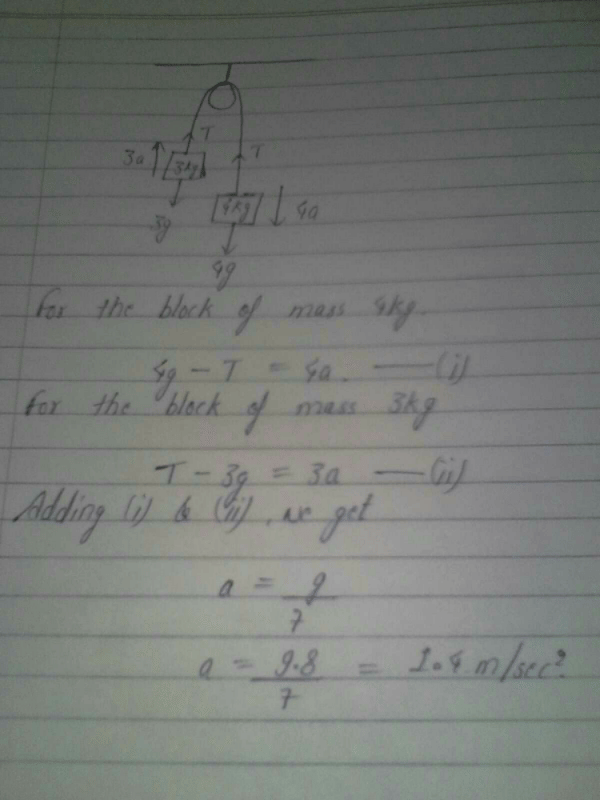 T
T
3a
3kg
3g
4kg
4a
4g
For the block of mass 4kg.
4g - T = 4a. —(i)
For the block of mass 3kg
T - 3g = 3a —(ii)
Adding (i) & (ii), we get
a = g/7
a = 9.8/7 = 1.4 m/sec².